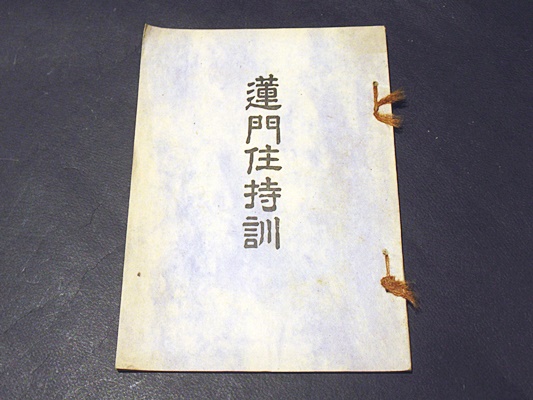 蓮門住持訓